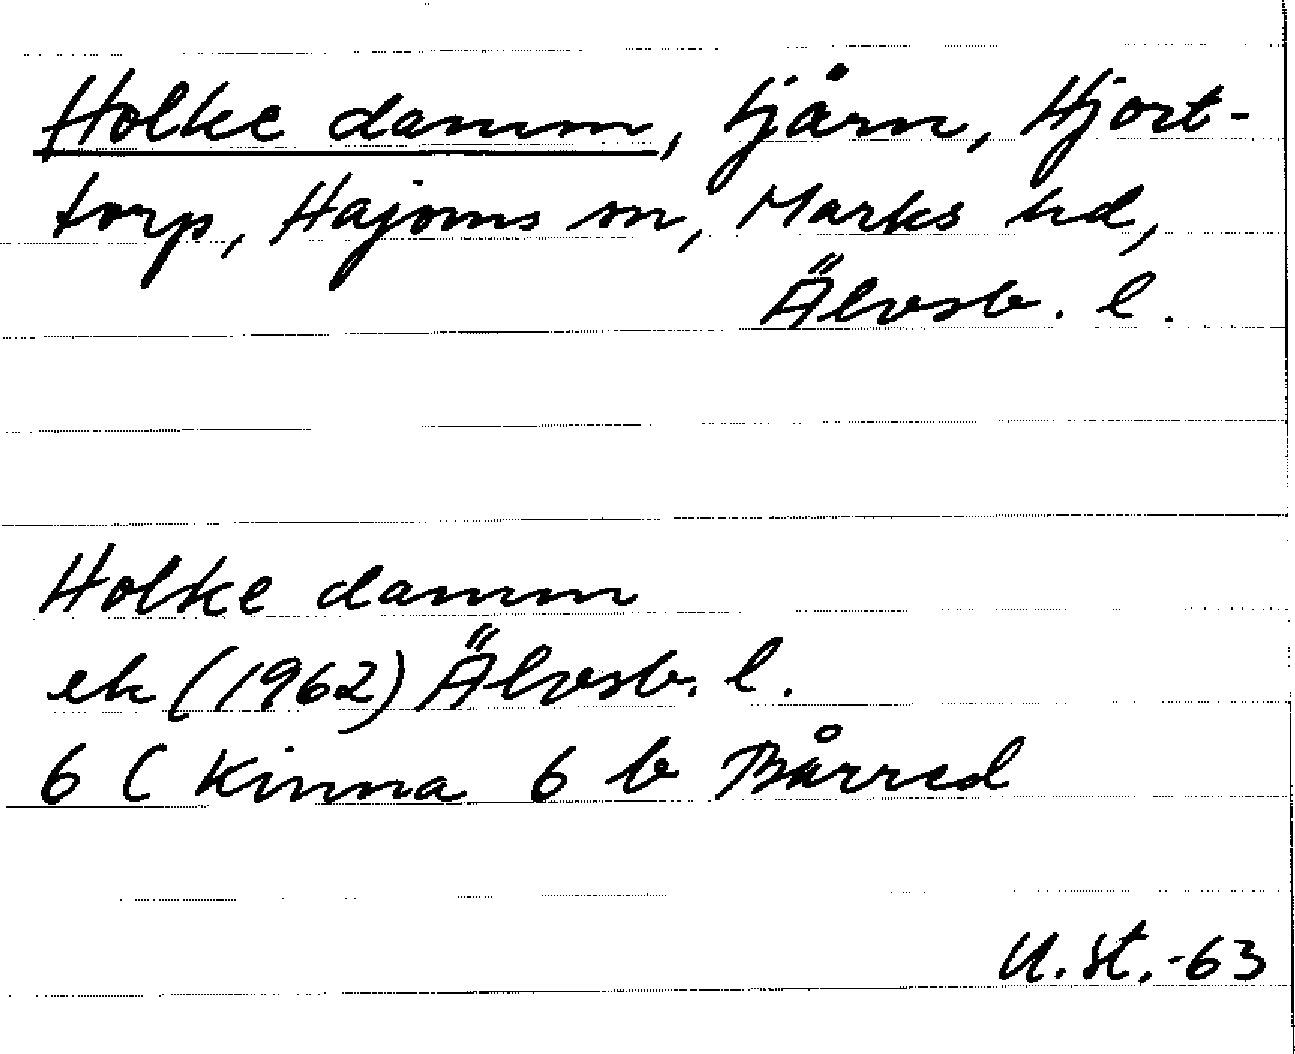 Holke damm, tjärn, Hjort-
torp, Hajoms sn, Marks hd,
Älvsb. l.
Holke damm
ek (1962) Älvsb. l.
6 C Kinna 6 b Bårred
U.St.-63